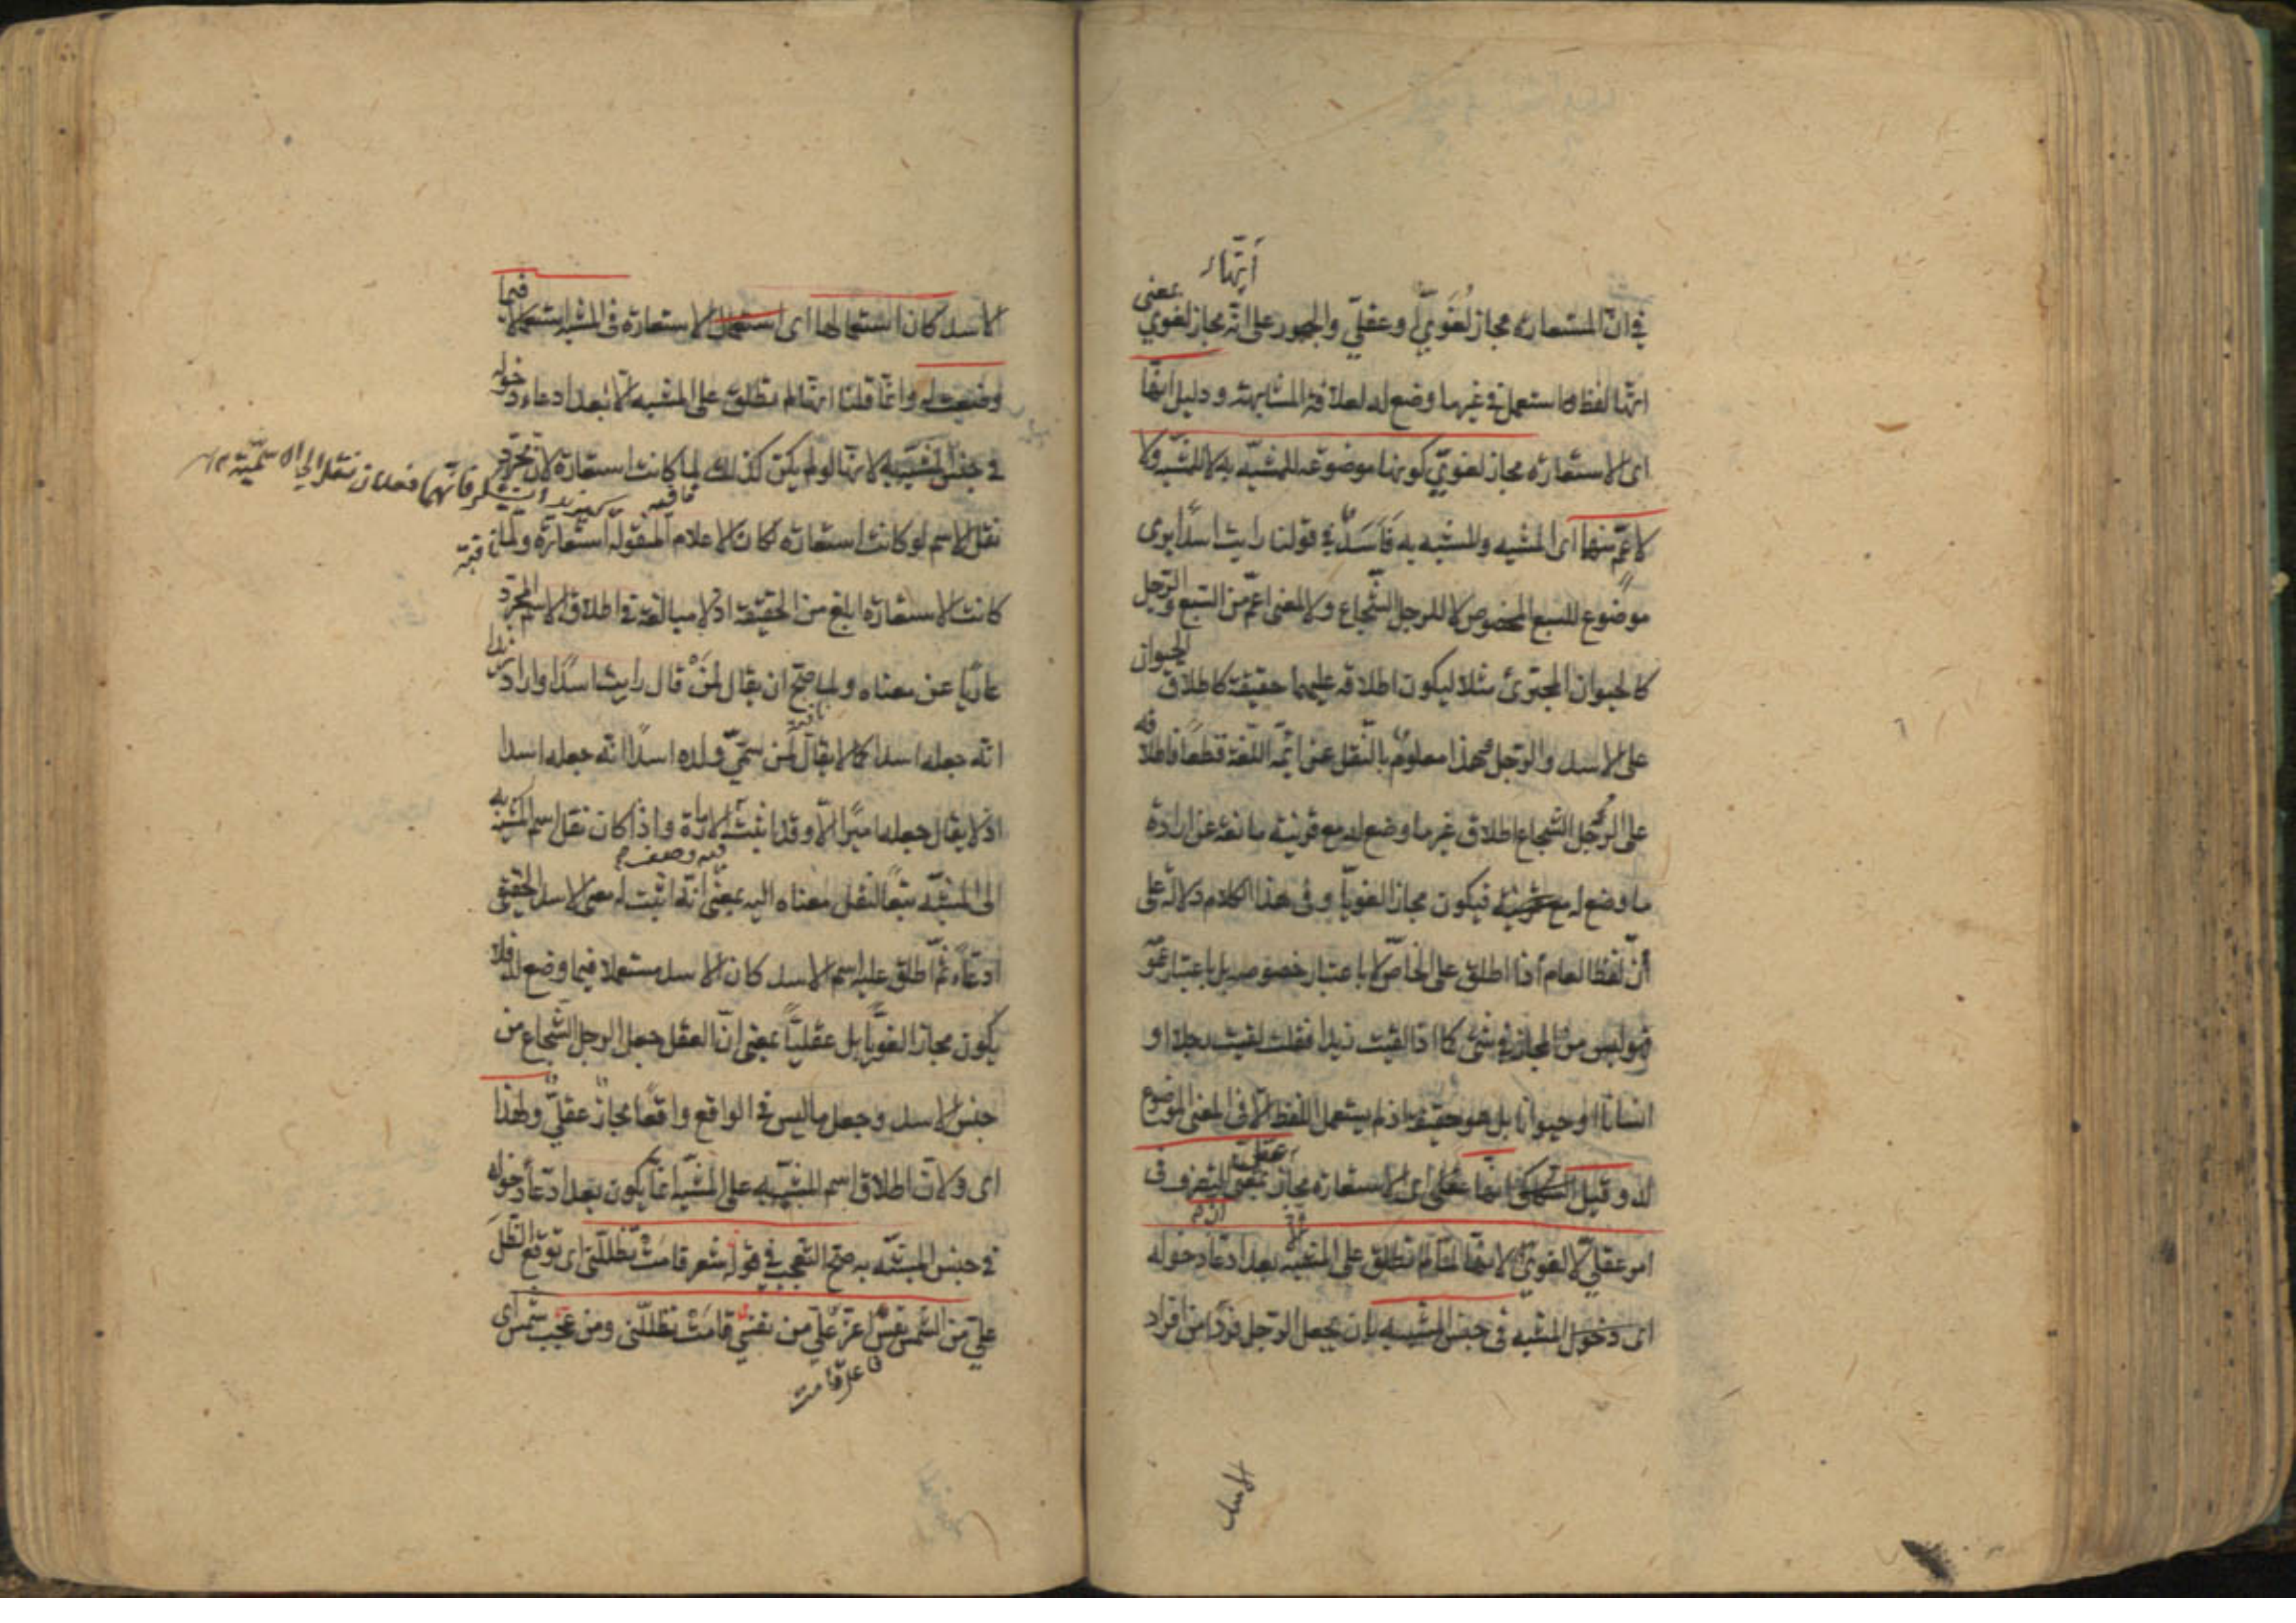 أنها
في ان المستعارة مجاز لغويّ او عقليّ والجمهور على انه مجاز لغوي بمعنى
انها لفظ استعمل في غير ما وضع له لعلاقة المشابهة ودليل انها
اى الاستعارة مجاز لغويّ كونها موضوعة للمشبّه به لا للمشبّه ولا
لاعمّ منهما اى المشبه والمشبه به فَاَسَدٌ في قولنا رايت اسدًا يرى
موضوع للسبع المخصوص لا للرجل الشّجاع ولا لمعنى اعمّ من السّبع والرّجل
كالحيوان المجترئ مثلا ليكون اطلاقه عليهما حقيقة كاطلاق الحيوان
على الاسد والرّجل وهذا معلوم بالنّقل عن ائمّة اللّغة قطعًا فاطلاقه
على الرّجل الشجاع اطلاق غير ما وضع له مع قرينة مانعة عن ارادة
ما وضع له فيكون مجازا لغويّا وفى هذا الكلام دلالة على
أنّ لفظ العام اذا اطلق على الخاصّ لا باعتبار خصوصه بل باعتبار عمو
فهو ليس من المجاز في شئ كما اذا لقيت زيدا فقلت لقيت رجلا او
انسانا او حيوانا بل هو حقيقة اذ لم يستعمل اللفظ الا فى المعنى الموضوع
له وقيل انها عقلى اى الاستعارة مجاز عقلىّ بمعنى التصرف فى
امر عقليّ لا لغويّ لانها لمّا لم تطلق على المشبه الا بعد ادّعاء دخوله
اى دخول المشبه فى جنس المشبه به بان يجعل الرّجل فردًا من افراد
الاسد
الاسد كان استعمالها اى استعمال الاستعارة فى المشبه استعمالا فيما
وضعت له وانّما قلنا انها لم تطلق على المشبه الا بعد ادعاء دخوله
في جنس المشبّه به لانها لو لم يكن كذلك لما كانت استعارة لانّ مجرّد
نقل الاسم لو كانت استعارة لكان الاعلام المنقولة استعارة ولما
كانت الاستعارة ابلغ من الحقيقة اذ لا مبالغة في اطلاق الاسم المجرّد
عاريًا عن معناه ولما صحّ ان يقال لمَنْ قال رايت اسدًا واراد زيدا
انّه جعله اسدا كما لا يقال لمن سمّى ولده اسدًا انّه جعله اسدا
اذ لا يقال جعله اميرًا الّا وقد اثبت الامارة واذا كان نقل اسم المشبه به
الى المشبّه تبعًا لنقل معناه اليه بمعنى انّه اثبت له معنى الاسد الحقيقى
ادعاءً ثمّ اطلق عليه اسم الاسد كان الاسد مستعملا فيما وضع له فلا
يكون مجازا لغويًّا بل عقليًّا بمعنى انّ العقل جعل الرجل الشّجاع من
جنس الاسد وجعل ما ليس في الواقع واقعًا مجازٌ عقليٌّ ولهذا
اى ولانّ اطلاق اسم المشبّه به على المشبّه انّما يكون بعد ادّعاء دخوله
في جنس المشبّه به صحّ التعجب في قوله شعر قامت تظلّلنى اى توقع الظّل
عليّ من الشّمس نفسٌ اعزّ عليّ من نفسي قامَتْ تظلّلنى ومن عجب شمس اى
فاعل قامت